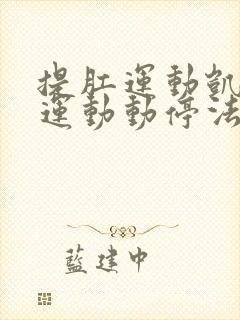 提肛運動凱
運動動停法
藍建中